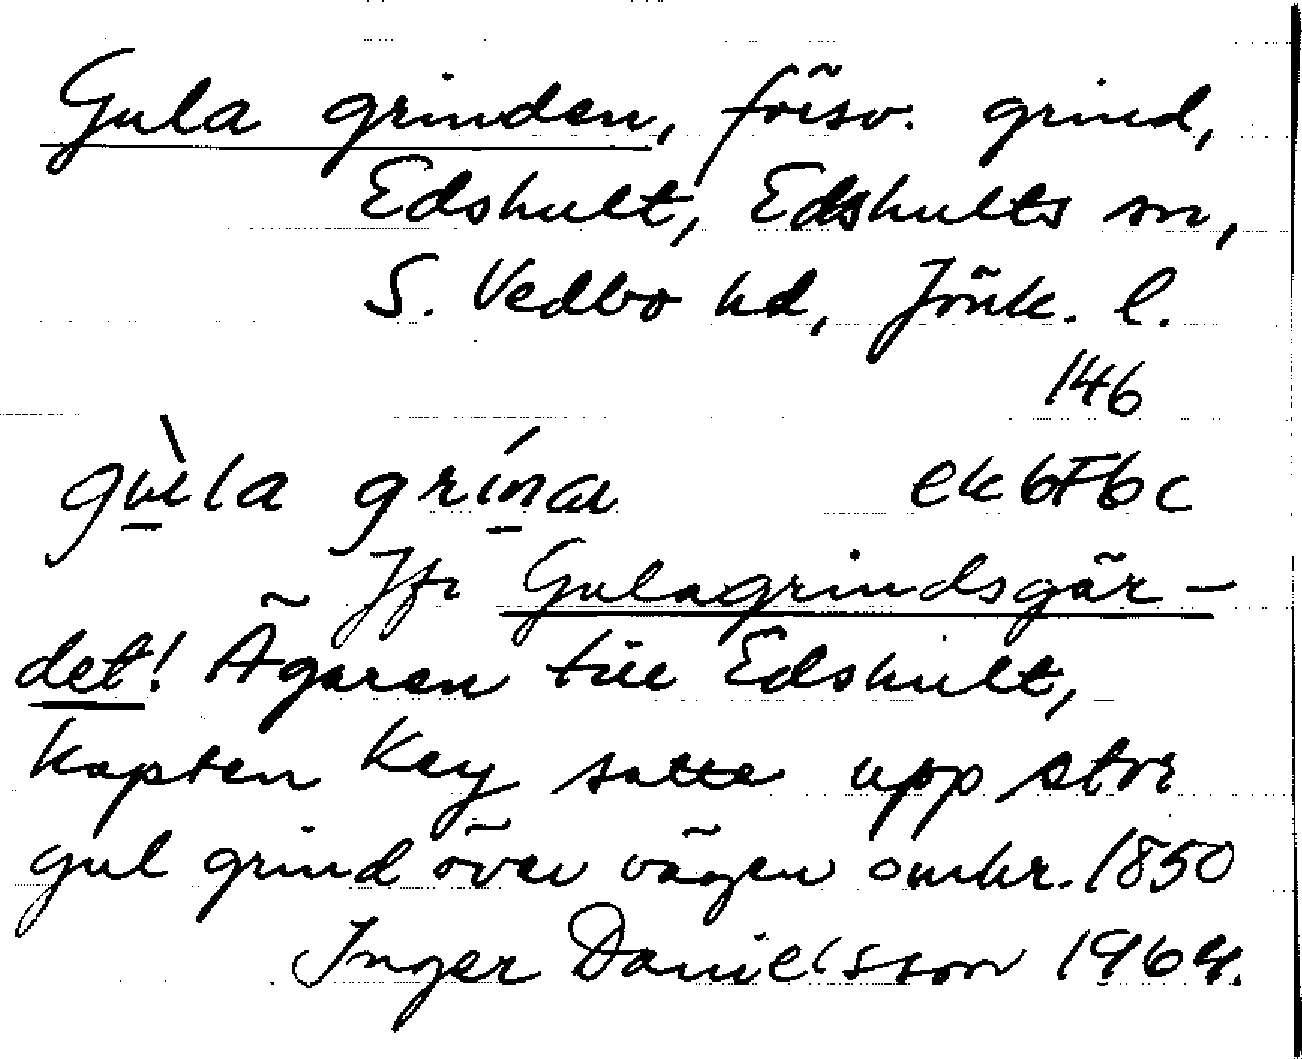 Gula grinden, försv. grind,
Edshult, Edshults sn,
S. Vedbo hd, Jönk. l.
146
gùla grína ek6F6c
Jfr Gulagrindsgär-
det! Ägaren till Edshult,
kapten Key satte upp stor
gul grind över vägen omkr. 1850
Inger Danielsson 1964.